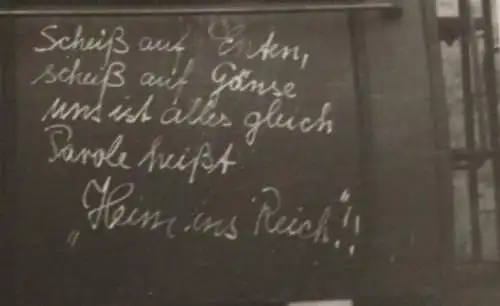 Scheiß auf Enten,
scheiß auf Gänse
uns ist alles gleich
Parole heißt
„Heim ins Reich!"!